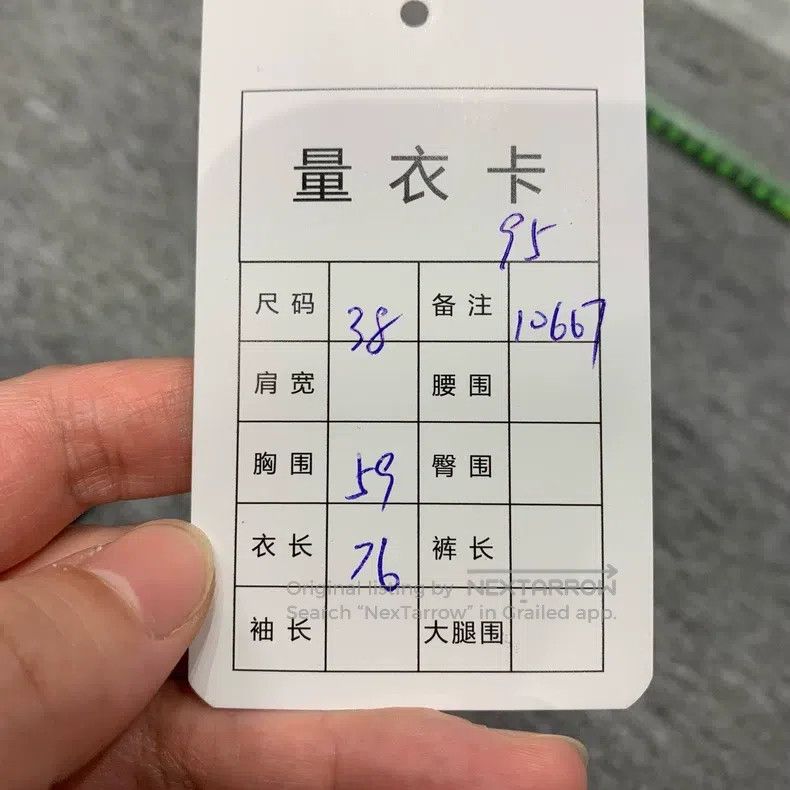 量衣卡
95
尺码 38 备注 10667
肩宽 腰围
胸围 59 臀围
衣长 76 裤长
Original listing by NEXTARROW
Search “NexTarrow” in Grailed app.
袖长 大腿围